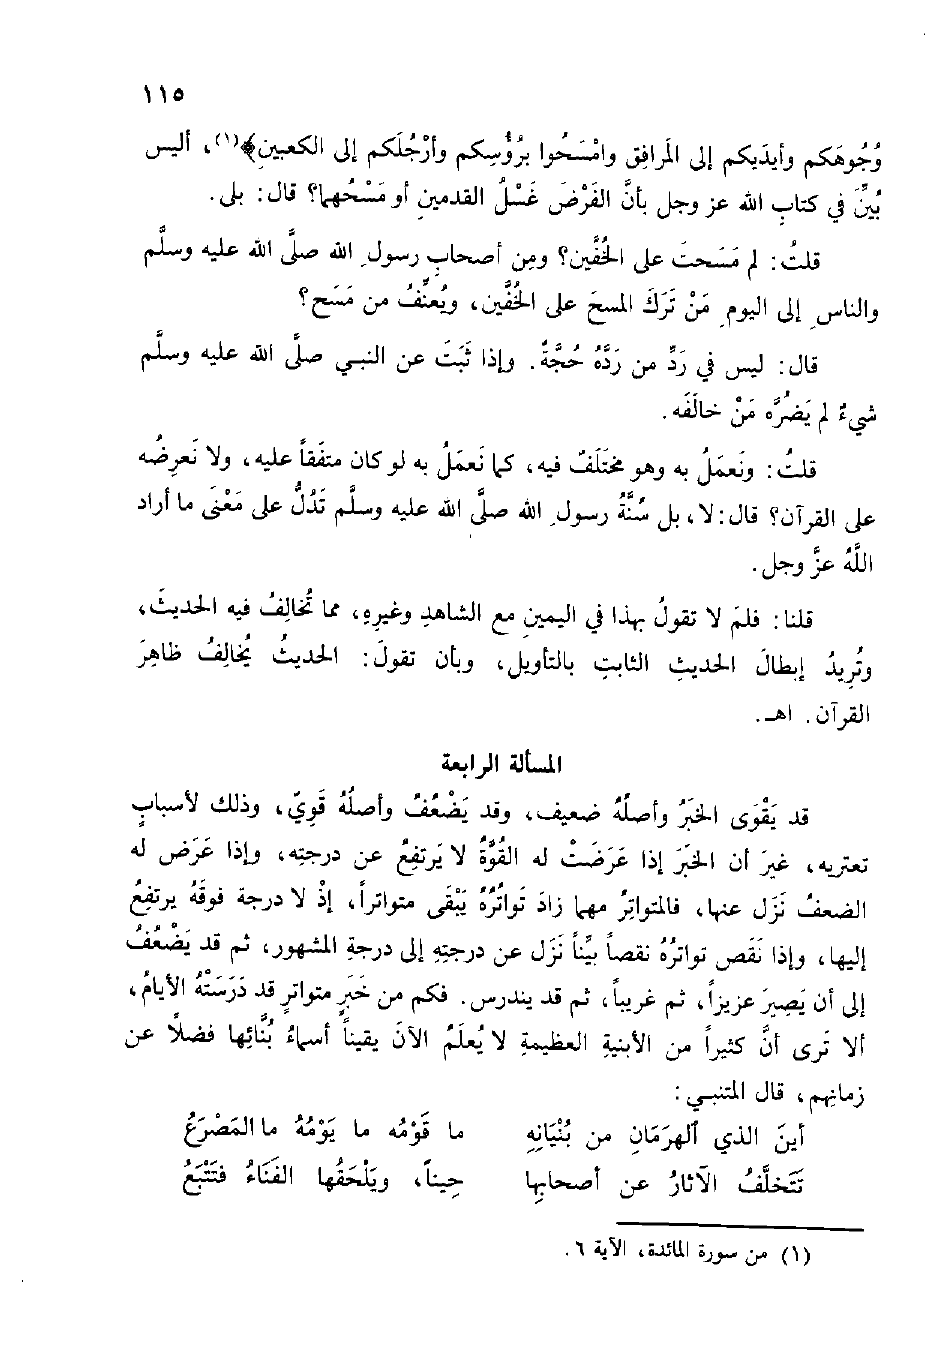 ١١٥
وُجُوهَكم وأيدَيكم إلى المَرافِق وامْسَحُوا برُؤُسِكم وأرْجُلَكم إلى الكعبين﴾(١)، أليس
بُيِّنَ في كتابِ الله عز وجل بأنَّ الفَرْضَ غَسْلُ القدمينِ أو مَسْحُهما؟ قال: بلى.
قلتُ: لم مَسَحتَ على الخُفَّين؟ ومِن أصحابِ رسولِ الله صلَّى الله عليه وسلَّم
والناسِ إلى اليومِ مَنْ تَرَكَ المسحَ على الخُفَّين، ويُعنِّفُ من مَسَح؟
قال: ليس في رَدِّ من رَدَّهُ حُجَّةٌ. وإذا ثَبَتَ عن النبي صلَّى الله عليه وسلَّم
شيءٌ لم يَضُرَّه مَنْ خالَفَه.
قلتُ: ونَعمَلُ به وهو مختَلَفٌ فيه، كما نَعمَلُ به لو كان متفَقاً عليه، ولا نَعرِضُه
على القرآن؟ قال: لا، بل سُنَّةُ رسولِ الله صلَّى الله عليه وسلَّم تَدُلُّ على مَعْنَى ما أراد
اللَّهُ عزَّ وجل.
قلنا: فلمَ لا تقولُ بهذا في اليمينِ مع الشاهدِ وغيرِهِ، مما تُخالِفُ فيه الحديثَ،
وتُرِيدُ إبطالَ الحديثِ الثابتِ بالتأويل، وبأن تقولَ: الحديثُ يُخالِفُ ظاهِرَ
القرآن. اهـ.
المسألة الرابعة
قد يَقْوَى الخبَرُ وأصلُهُ ضعيف، وقد يَضْعُفُ وأصلُهُ قَوِيّ، وذلك لأسبابٍ
تعتريه، غيرَ أن الخبَرَ إذا عَرَضَتْ له القُوَّةُ لا يَرتفِعُ عن درجتِه، وإذا عَرَض له
الضعفُ نَزَل عنها، فالمتواتِرُ مهما زادَ تَواتُرُهُ يَبْقَى متواتراً، إذْ لا درجة فوقَهُ يرتفِعُ
إليها، وإذا نَقَص تواترُهُ نقصاً بيِّناً نَزَل عن درجتِهِ إلى درجةِ المشهور، ثم قد يَضْعُفُ
إلى أن يَصِيرَ عزيزاً، ثم غريباً، ثم قد يندرس. فكم من خَبَرٍ متواترٍ قد دَرَسَتْهُ الأيامُ،
ألا تَرى أنَّ كثيراً من الأبنيةِ العظيمةِ لا يُعلَمُ الآنَ يقيناً أسماءُ بُنَّائِها فضلًا عن
زمانِهم، قال المتنبي:
أينَ الذي ٱلهرَمَانِ من بُنْيَانِهِ ما قَوْمُه ما يَوْمُهُ ما المَصْرَعُ
تَتَخلَّفُ الآثارُ عن أصحابِها حِيناً، ويَلْحَقُها الفَنَاءُ فتَتْبَعُ
(١) من سورة المائدة، الآية ٦.